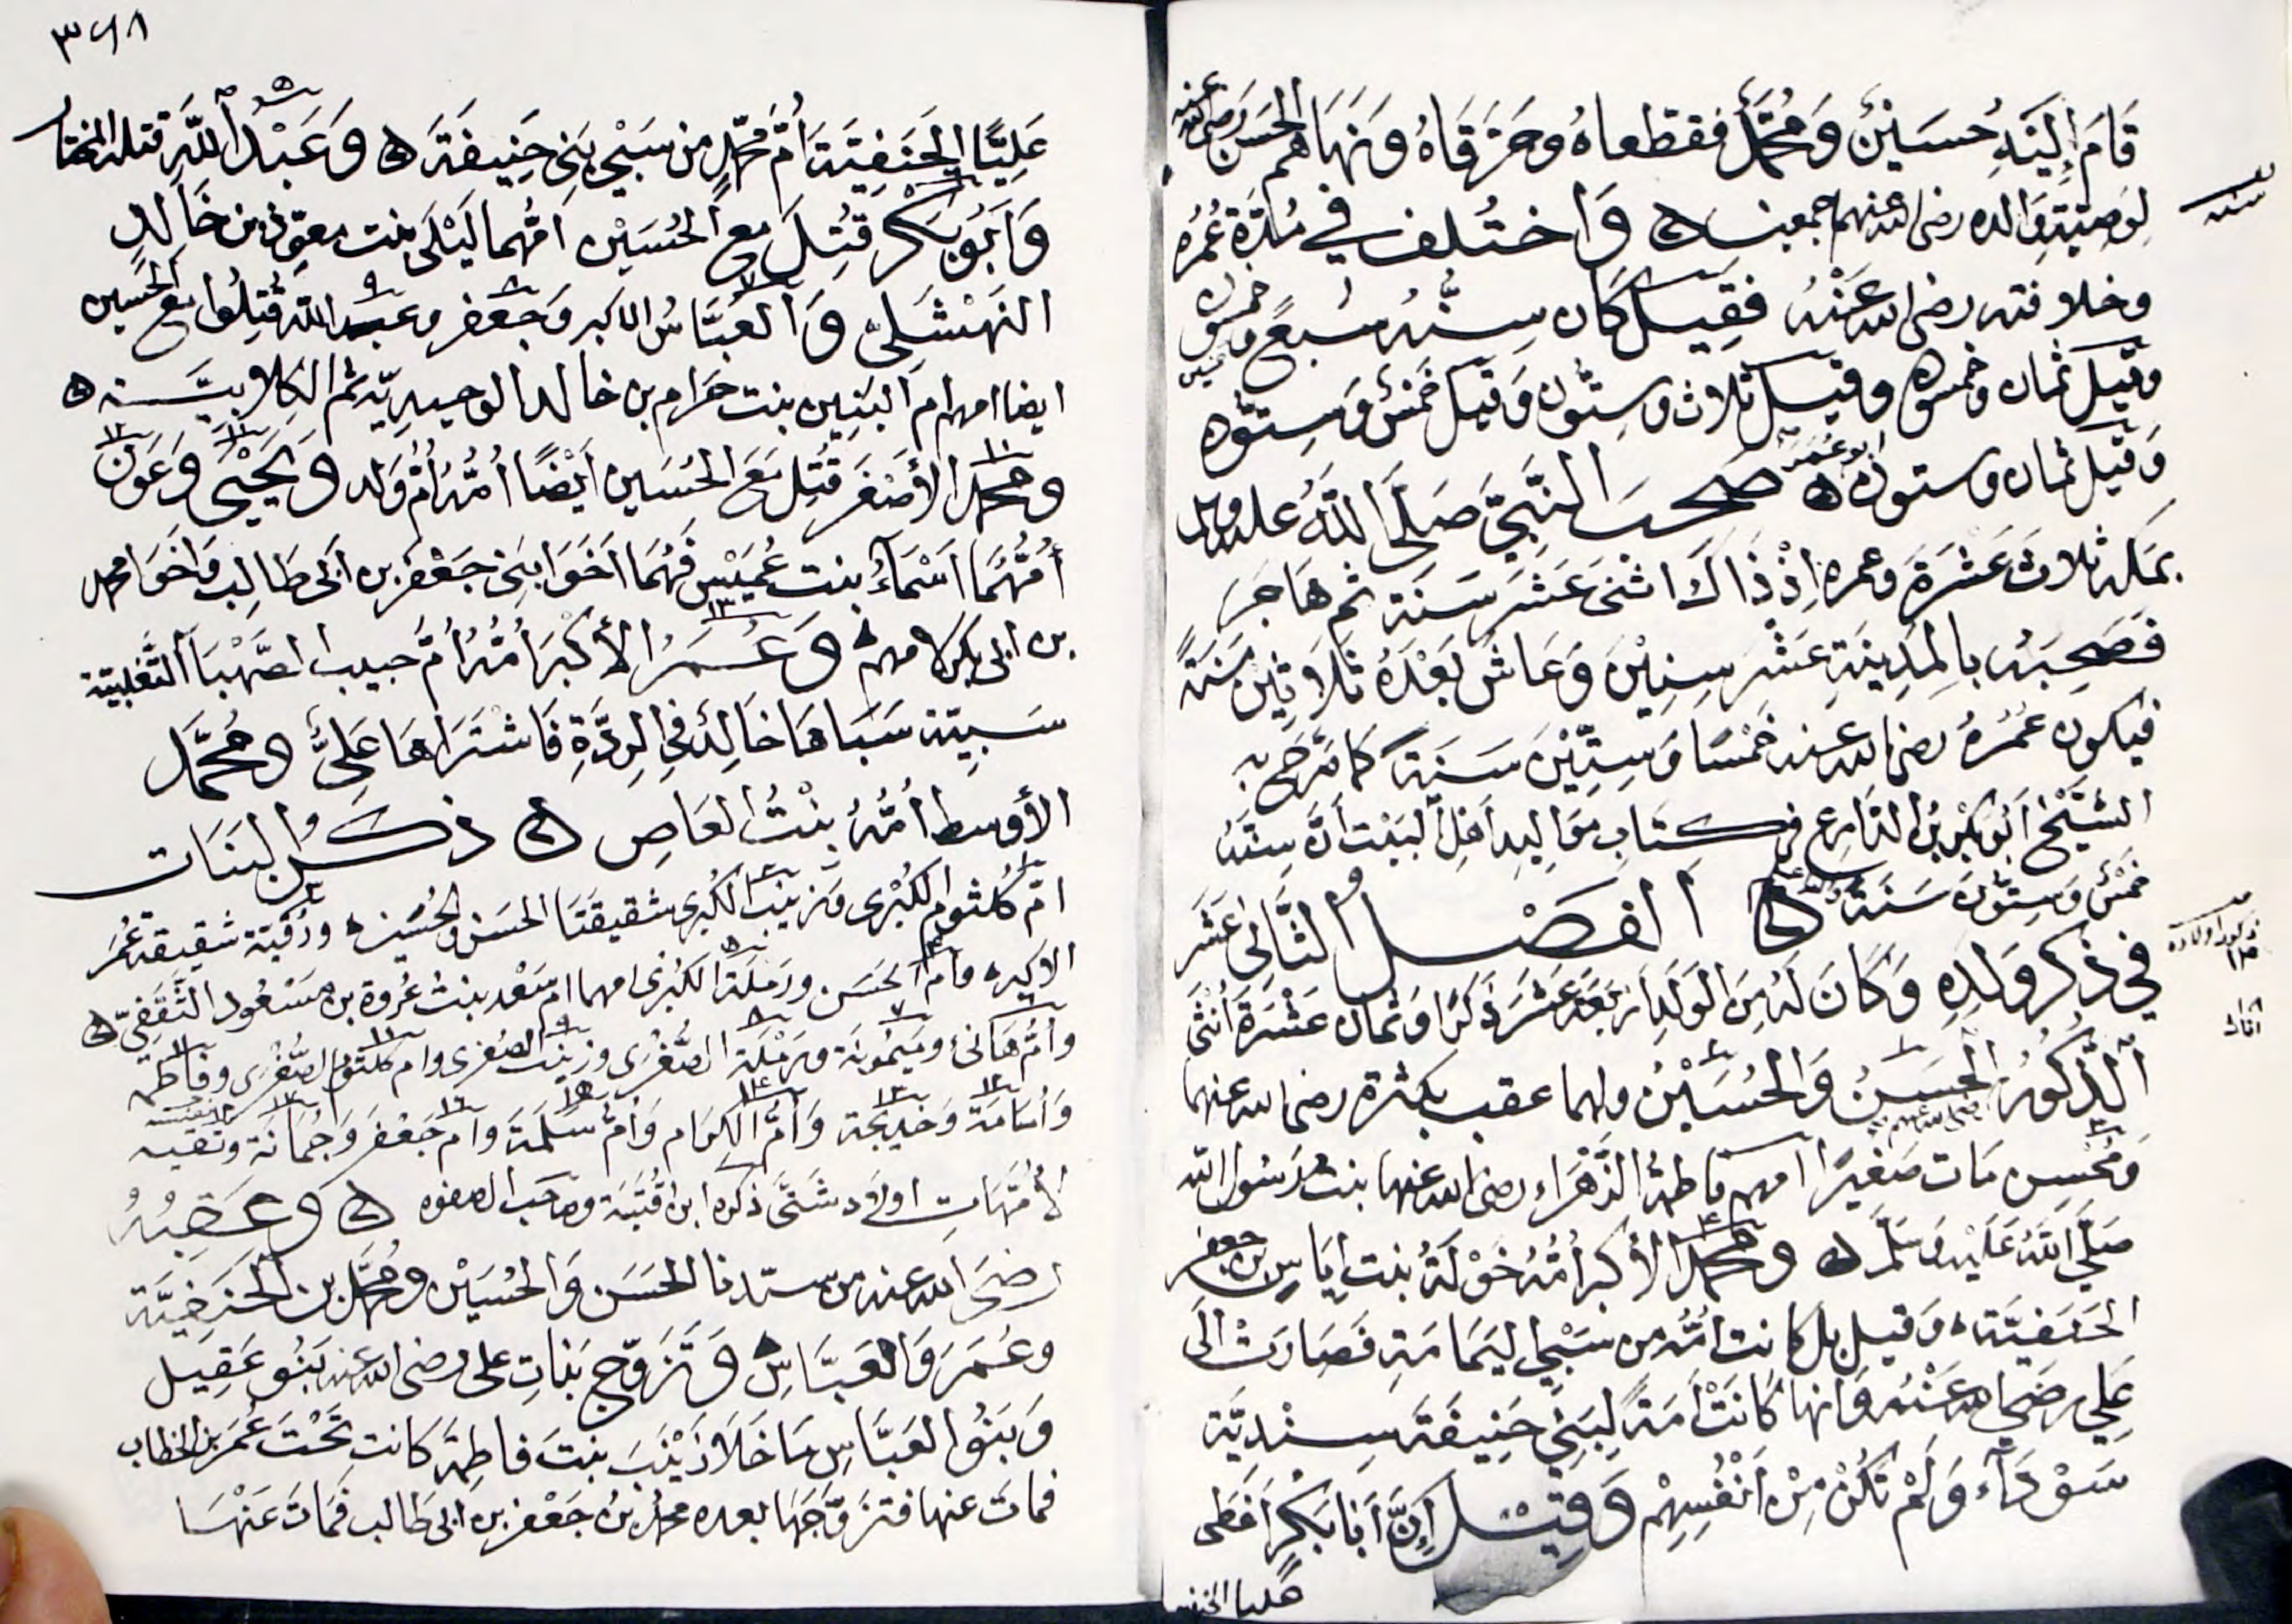 قَامَ إِلَيْهِ حُسَيْنٌ وَمُحَمَّدٌ فقطعاه وحَرَّقَاهُ وَنَهَاهم الحَسَن رضى الله عنه
لِوَصِيَّةِ وَالده رضى الله عنهم اجمعين ه وَاختُلف في مُدَّةِ عُمُرِه
سنه
وخلافته رضى الله عَنْهُ فقِيلَ كَان سِنُّهُ سَبعٌ وخمسون
وقيل ثمان وخمسون وقيل ثلاث وستّون وَقيل خمسٌ وَسِتّون
وَقيل ثمان وستون ه صَحَبَ النَّبِيَّ صَلَّى اللَّهُ عليه وسلم
بمكة ثلاثَ عَشَرَةَ وعمره إِذْ ذَاكَ اثنىَ عَشَرَ سَنَة ثم هَاجَرَ
فَصَحِبَه بالمدِينَةِ عَشْر سِنِيْنَ وَعَاشَ بَعْدَهُ ثَلَاثِيْنَ سَنَةً
فيكون عُمُرُهُ رضى الله عنه خَمْسًا وَسِتِّيْنَ سَنَةً كَمَا صَرَّحَ به
الشَّيْخُ أَبُو بَكْرِ بْنُ الدَّارِع في كتَابِ مَوَاليد أهْلِ البَيْتِ أَنَّ سِنَّهُ
خمسٌ وَسِتّون سَنَة والله اعلم ه الفَصْلُ الثَّانِى عَشَرَ
في ذكر وَلَدِهِ وَكَانَ لَهُ مِنَ الوَلَدِ اربَعَة عَشَرَ ذَكَرًا وَثمان عَشْرَةَ أُنْثَى
ذكور اولاده
١٤
١٨
اناث
الذُّكُورُ الحَسَنُ وَالحُسَيْنُ ولهما عقب بكثرة رضى الله عنهما
وَمُحسِن مَات صَغِيرًا امهم فاطمةُ الزَّهْرَاء رضى الله عنها بنت رَسُول الله
صَلَّى اللَّهُ عَلَيْهِ وَسَلَّمَ ه ومحمد الأكبر أُمُّهُ خَوْلَةُ بنت ايَاسِ بن جعفر
الحَنَفِيَّة ه وَقيل بل كانت أمّه من سَبْىِ اليَمَامَةِ فَصَارَتْ الَى
عَلِي رَضي الله عَنْهُ وَانها كَانَتْ أَمَةً لِبَنِي حَنِيفَةَ سِنْدِيَّة
سَوْدَآء وَلَمْ تَكُنْ مِنْ أَنْفُسِهِمْ وَقِيْلَ إِنَّ أَبَا بَكْرٍ اَعْطَى
عليا الحنفية
٣٦٨
عَلِيًّا الحَنَفِيَّة أُمَّ مُحَمَّدٍ من سَبْىِ بَنِى حَنِيفَة ه وَعَبْدُ اللَّهِ قتله المختار
وَأَبُو بَكْر قُتِلَ مع الحُسَيْن أمُّهما لَيْلَى بنت معوّذ بن خَالدٍ
النهْشَلِىّ وَالعَبَّاسُ الأكبر وَجَعفر وعبد الله قُتِلُوا مع الحُسين
ايضا امهم امُ البَنِين بنت حَرَام بن خالد الوحيدِيّة ثم الكِلابيَّة ه
ومحمد الأَصْغَر قُتِل مَعَ الحُسَين أَيْضًا أُمُّهُ أُمُّ وَلد وَيَحْيَى وَعَون
أُمُّهُمَا أَسْمَاءُ بنت عُمَيْس فَهُمَا أَخَوَا بَنِى جَعْفَر بن أبى طَالِب وَأخَوَا محمد
بن ابى بكر لامهم ه وَعُمَرُ الأَكْبَر أُمُّهُ أُمُّ حَبيب الصَّهْبَا التَّغْلِبيّة
سَبِيّة سَبَاهَا خَالِدٌ فى الرِّدَّةِ فَاشْتَرَاهَا عَلِىٌّ وَمُحَمَّد
الأوسط أُمُّهُ بِنْتُ العَاصِ ه ذكرُ البَنَات
امّ كُلثوم الكُبْرَى وَزينب الكُبرى شقيقَتَا الحسَن والحُسَين ه ورُقيّة شقيقة عُمَر
الاكبر ه وأم الحَسَن ورَملَة الكُبْرَى امهما ام سَعْد بنتُ عُروة بن مَسْعُود الثَّقَفِىّ ه
وأُمُّ هَانئ ومَيمُونَة ورَمْلَة الصُّغْرى وزينب الصُّغرى وام كلثوم الصُّغْرَى وفاطمة
وَأُمَامَة وَخديجَة وَأمُّ الكِرَام وَأمُّ سَلَمَة وَام جَعْفَر وَجُمَانَة وَنفيسة
لأُمَّهَاتِ اولاد شَتَّى ذكره ابن قُتَيْبَة وصَاحب الصفوه ه وعَقِبُهُ
رضىَ الله عنه من سيّدنا الحَسَن وَالحُسَيْن ومُحَمَّد بن الحَنَفِيَّة
وعُمَرَ وَالعَبَّاسِ ه وَتَزَوّج بَنَاتِ على رضى الله عنه بَنُو عَقِيل
وَبَنُو العَبَّاس مَا خَلَا زَيْنَبَ بنتَ فاطِمَة كَانت تَحْتَ عُمَرَ بن الخطاب
فمَات عنها فتَزَوَّجَهَا بعده محمد بنُ جَعْفر بن ابى طَالب فَمَات عَنْهَا